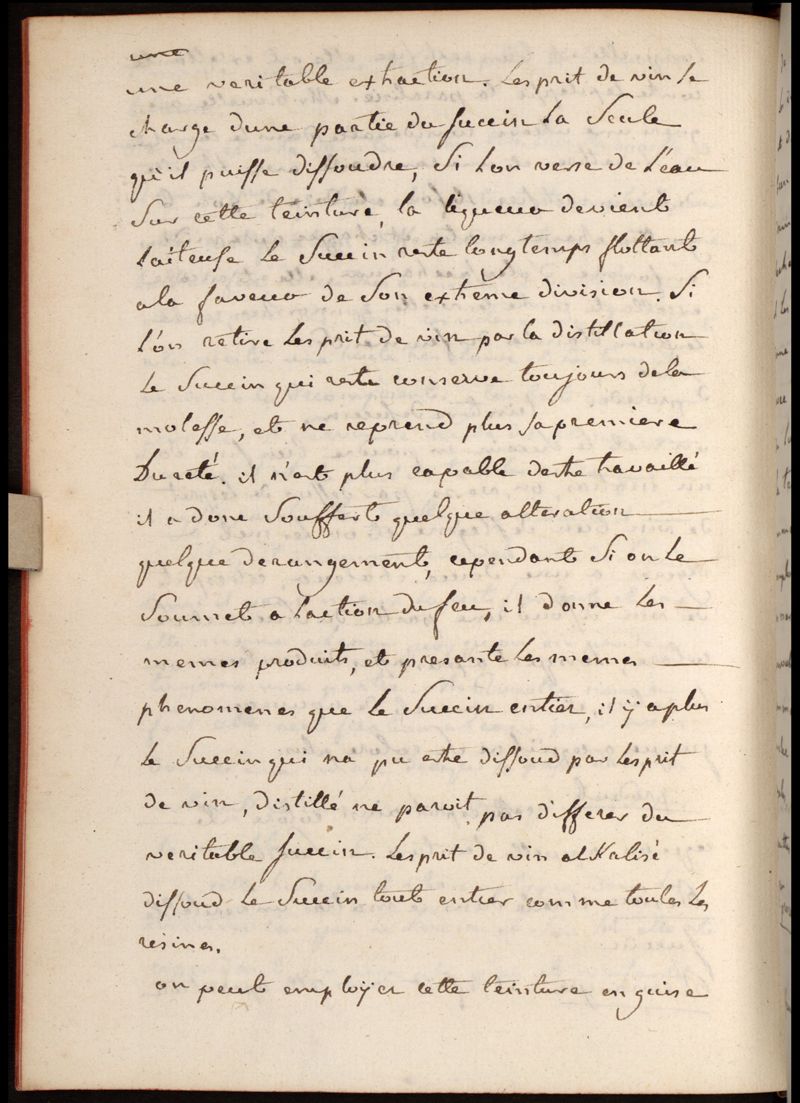 une
une veritable extraction. Lesprit de vin se
charge dune partie du succin La Seule
qu'il puisse dissoudre, Si Lon verse de L'eau
Sur cette teinture, la liqueur devient
Laiteuse Le Succin reste longtemps flottant
a la faveur de Son extrême division. Si
L'on retire Lesprit de vin par la distillation
Le Succin qui reste conserve toujours de la
molesse, et ne reprend plus sa premiere
Dureté. il n'est plus capable destre travaillé
il a donc Souffert quelque alteration
quelque derangement, cependant Si on Le
Soumet a Laction du feu, il donne Les
memes produits, et presante Les memes
phenomenes que Le Succin entier, il ÿ a plus
Le Succin qui na pu estre dissoud par Lesprit
de vin, distillé ne paroit pas differer du
veritable succin. Lesprit de vin alKalisé
dissoud Le Succin tout entier comme toutes Les
résines.
on peut emploÿer cette teinture en guise